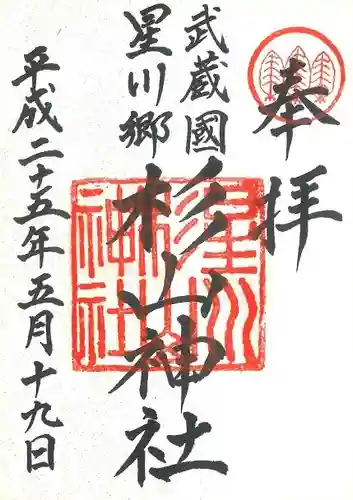 奉拝
武蔵國
星川郷
杉山神社
平成二十五年五月十九日
星川
杉山
神社